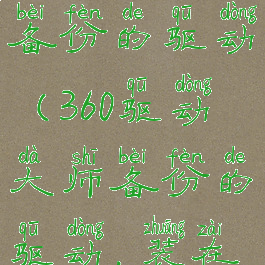 bèi fèn de qū dòng
备份的驱动
qū dòng
(360驱动
dà shī bèi fèn de
大师备份的
qū dòng zhuāng zài
驱动,装在